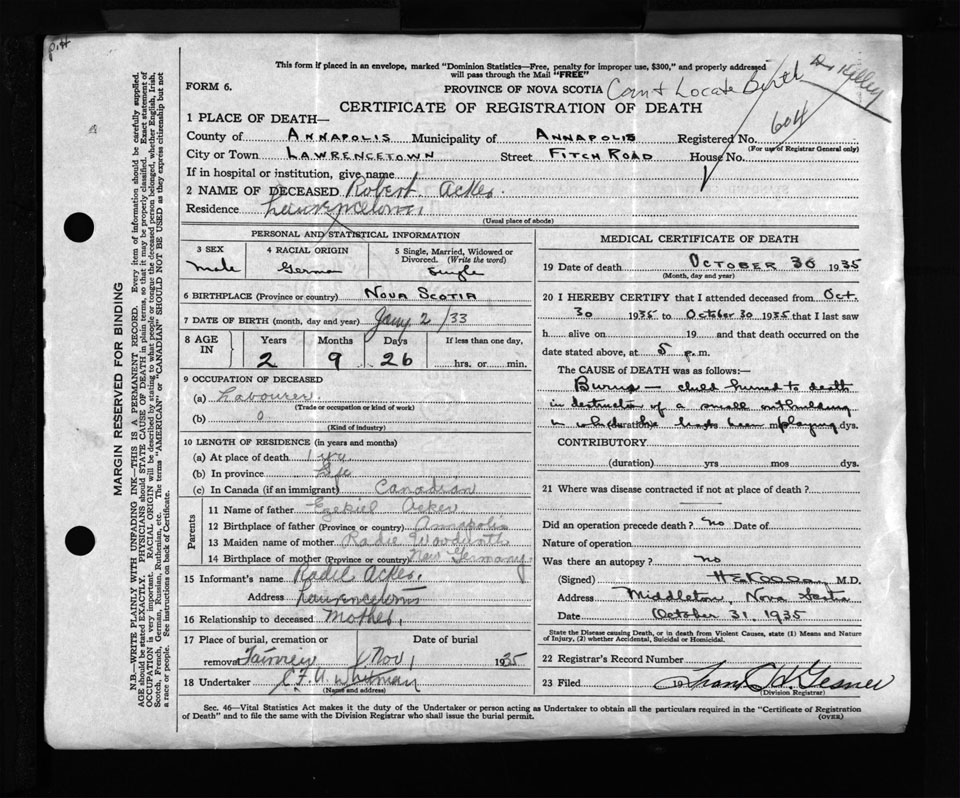 This form if placed in an envelope, marked "Dominion Statistics—Free, penalty for improper use, $300," and properly addressed
will pass through the Mail "FREE"
FORM 6.
PROVINCE OF NOVA SCOTIA
Can't Locate Birth
Dr Kelley
CERTIFICATE OF REGISTRATION OF DEATH
1 PLACE OF DEATH—
County of ANNAPOLIS Municipality of ANNAPOLIS Registered No. 604
(For use of Registrar General only)
City or Town LAWRENCETOWN Street FITCH ROAD House No.
If in hospital or institution, give name
2 NAME OF DECEASED Robert Acker.
Residence Lawrencetown.
(Usual place of abode)
PERSONAL AND STATISTICAL INFORMATION
3 SEX
male
4 RACIAL ORIGIN
German
5 Single, Married, Widowed or
Divorced. (Write the word)
Single
6 BIRTHPLACE (Province or country) NOVA SCOTIA
7 DATE OF BIRTH (month, day and year) Jany. 2/33
8 AGE IN
Years Months Days If less than one day,
2 9 26 hrs. or min.
9 OCCUPATION OF DECEASED
(a) Labourer
(Trade or occupation or kind of work)
(b) 0
(Kind of industry)
10 LENGTH OF RESIDENCE (in years and months)
(a) At place of death 1 yr.
(b) In province Life
(c) In Canada (if an immigrant) Canadian
Parents
11 Name of father Ezekiel Acker
12 Birthplace of father (Province or country) Annapolis
13 Maiden name of mother Radie
14 Birthplace of mother (Province or country) New Germany
15 Informant's name Radie Acker.
Address Lawrencetown
16 Relationship to deceased Mother.
17 Place of burial, cremation or Date of burial
removal Fairview Nov 1 1935
18 Undertaker C.F.A. Whitman
(Name and address)
MEDICAL CERTIFICATE OF DEATH
19 Date of death OCTOBER 30 1935
(Month, day and year)
20 I HEREBY CERTIFY that I attended deceased from Oct.
30 1935 to October 30 1935 that I last saw
h alive on 19 and that death occurred on the
date stated above, at 5 p.m.
The CAUSE OF DEATH was as follows:—
Burns — child burned to death
in destruction of a small outbuilding
in which he had been playing
(duration) dys.
CONTRIBUTORY
(duration) yrs mos dys.
21 Where was disease contracted if not at place of death?
Did an operation precede death? no Date of
Nature of operation
Was there an autopsy? no
(Signed) M.D.
Address Middleton, Nova Scotia
Date October 31, 1935
State the Disease causing Death, or in death from Violent Causes, state (1) Means and Nature
of Injury, (2) whether Accidental, Suicidal or Homicidal.
22 Registrar's Record Number
23 Filed 19 Frank H. Gesner
Division Registrar
Sec. 46—Vital Statistics Act makes it the duty of the Undertaker or person acting as Undertaker to obtain all the particulars required in the "Certificate of Registration
of Death" and to file the same with the Division Registrar who shall issue the burial permit.
(OVER)
MARGIN RESERVED FOR BINDING
N.B.—WRITE PLAINLY WITH UNFADING INK—THIS IS A PERMANENT RECORD. Every item of information should be carefully supplied.
AGE should be stated EXACTLY. PHYSICIANS should STATE CAUSE OF DEATH in plain terms, so that it may be properly classified. Exact statement of
OCCUPATION is very important. RACIAL ORIGIN will be described by stating to what people or tongue the deceased person belonged, whether English, Irish,
Scotch, French, German, Russian, Ruthenian, etc. The terms "AMERICAN" or "CANADIAN" SHOULD NOT BE USED as they express citizenship but not
a race or people. See instructions on back of Certificate.